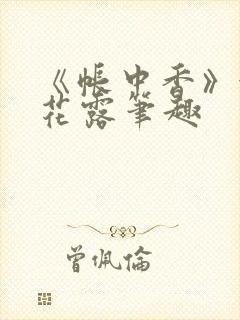 《帐中香》
花露笔趣
曾佩伦